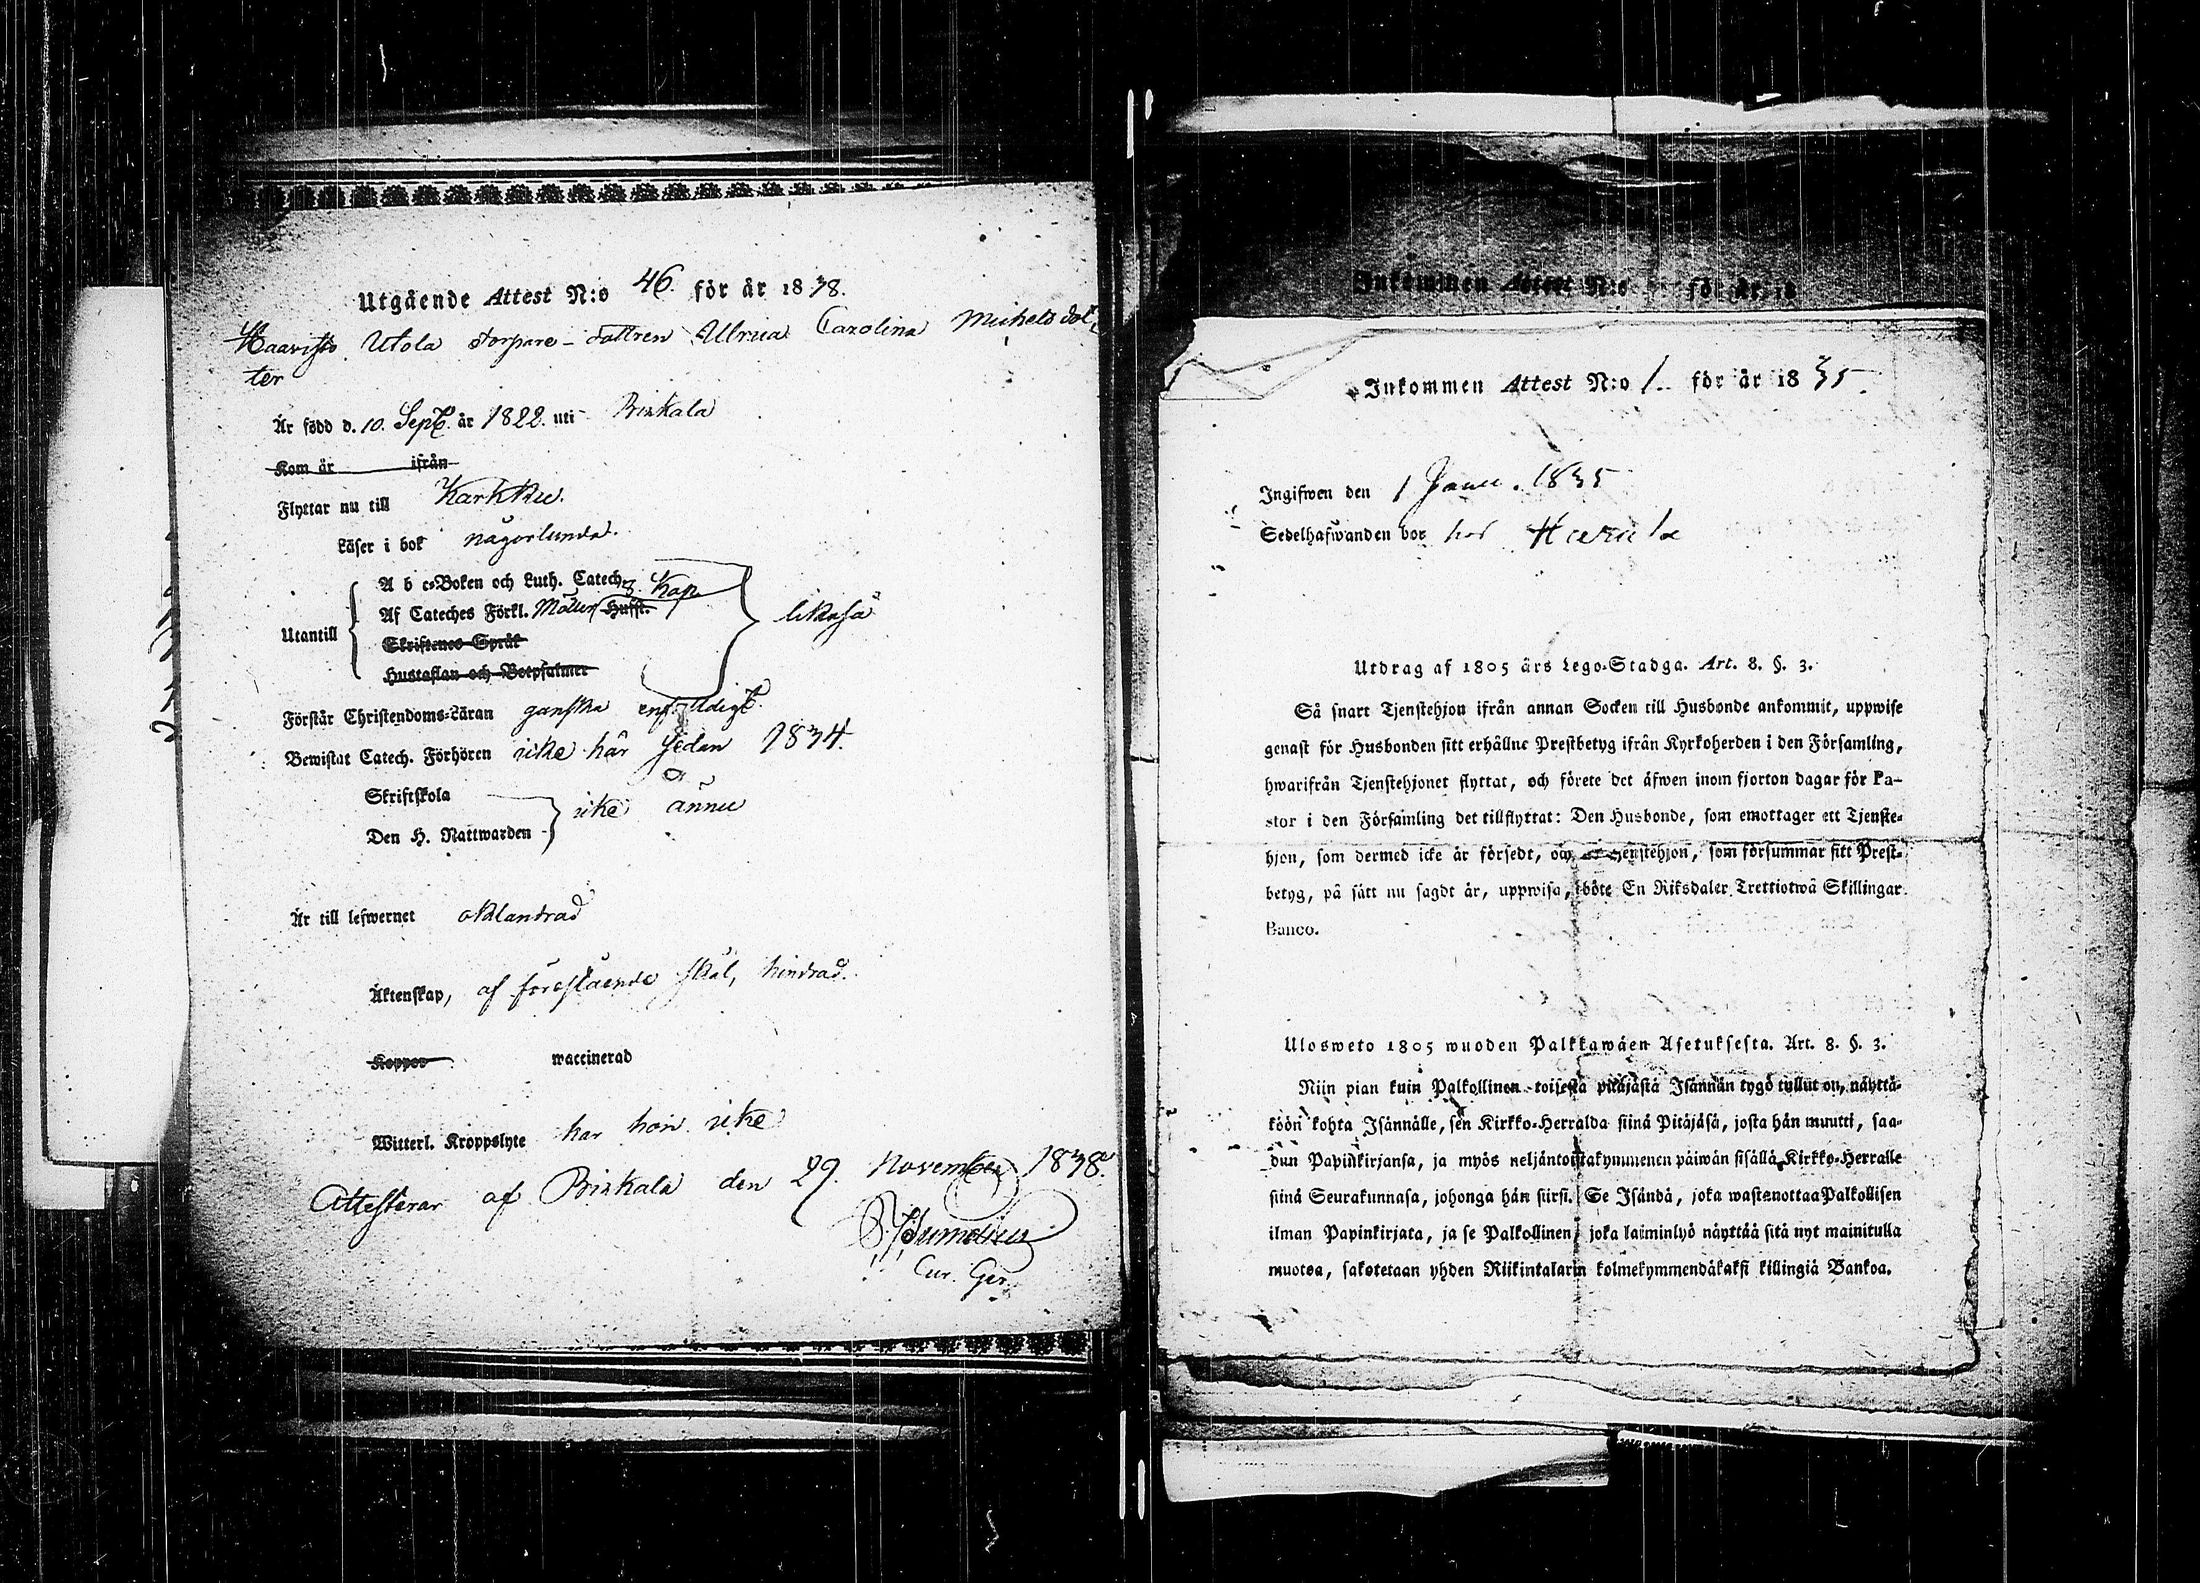 Utgående Attest N:o 46. för år 1838.
Haavisto Utola torpare-dottren Ulrica Carolina Michelsdot-
ter
Är född d. 10. Sept. år 1822. uti Birkala
Kom år ifrån
Flyttar nu till Karkku.
Läser i bok någorlunda.
Utantill
A b c-Boken och Luth. Catech.
Af Cateches Förkl. Möller Hufst. 3 Kap
Skriftenes Språk
Hustaflan och Botpsalmer
likaså
Förstår Christendoms-Läran ganska enfaldigt.
Bewistat Catech. Förhören icke här sedan 1834.
Skriftskola
Den H. Nattwarden
icke ännu
Är till lefwernet oklandrad
Äktenskap, af förestående skäl, hindrad.
Koppor waccinerad
Witterl. Kroppslyte har hon icke
Attesterar af Birkala den 29. November 1838.
Cur. Ger.
Inkommen Attest N:o för år 18
Inkommen Attest N:o 1. för år 1835.
Ingifwen den 1 Janu. 1835
Sedelhafwanden bor hos
Utdrag af 1805 års Lego-Stadga. Art. 8. §. 3.
Så snart Tjenstehjon ifrån annan Socken till Husbonde ankommit, uppwise
genast för Husbonden sitt erhållne Prestbetyg ifrån Kyrkoherden i den Församling,
hwarifrån Tjenstehjonet flyttat, och förete det äfwen inom fjorton dagar för Pa-
stor i den Församling det tillflyttat: Den Husbonde, som emottager ett Tjenste-
hjon, som dermed icke är försedt, och Tjenstehjon, som försummar sitt Prest-
betyg, på sätt nu sagdt är, uppwisa, böte En Riksdaler Trettiotwå Skillingar
Banco.
Ulosweto 1805 wuoden Palkkawäen Asetuksesta. Art. 8. §. 3.
Niin pian kuin Palkollinen toisesta pitäjästä Isännän tygö tullut on, näyttä-
köön kohta Isännälle, sen Kirkko-Herralda siinä Pitäjäsä, josta hän muutti, saa-
dun Papinkirjansa, ja myös neljäntoistakymmenen päiwän sisällä Kirkko-Herralle
siinä Seurakunnasa, johonga hän siirsi. Se Isändä, joka wastanottaa Palkollisen
ilman Papinkirjata, ja se Palkollinen, joka laiminlyö näyttää sitä nyt mainitulla
muotoa, sakotetaan yhden Riikintalarin kolmekymmendäkaksi killingiä Bankoa.